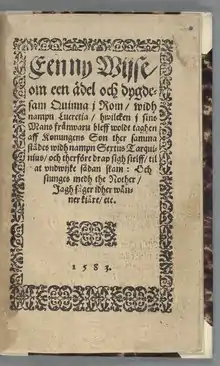 Een ny Wise
om een ädel och dygde-
sam Quinna j Rom / widh
nampn Lucretia / hwilcken j sine
Mans frånwaru bleff woldt taghen
aff Konungens Son ther samma
städes widh nampn Sextus Tarqui-
nius / och therföre drap sigh sielff / til
at vndwijke sådan skam : Och
siunges medh the Nother /
Jagh säger idher wän-
ner kläre / etc.
1583.